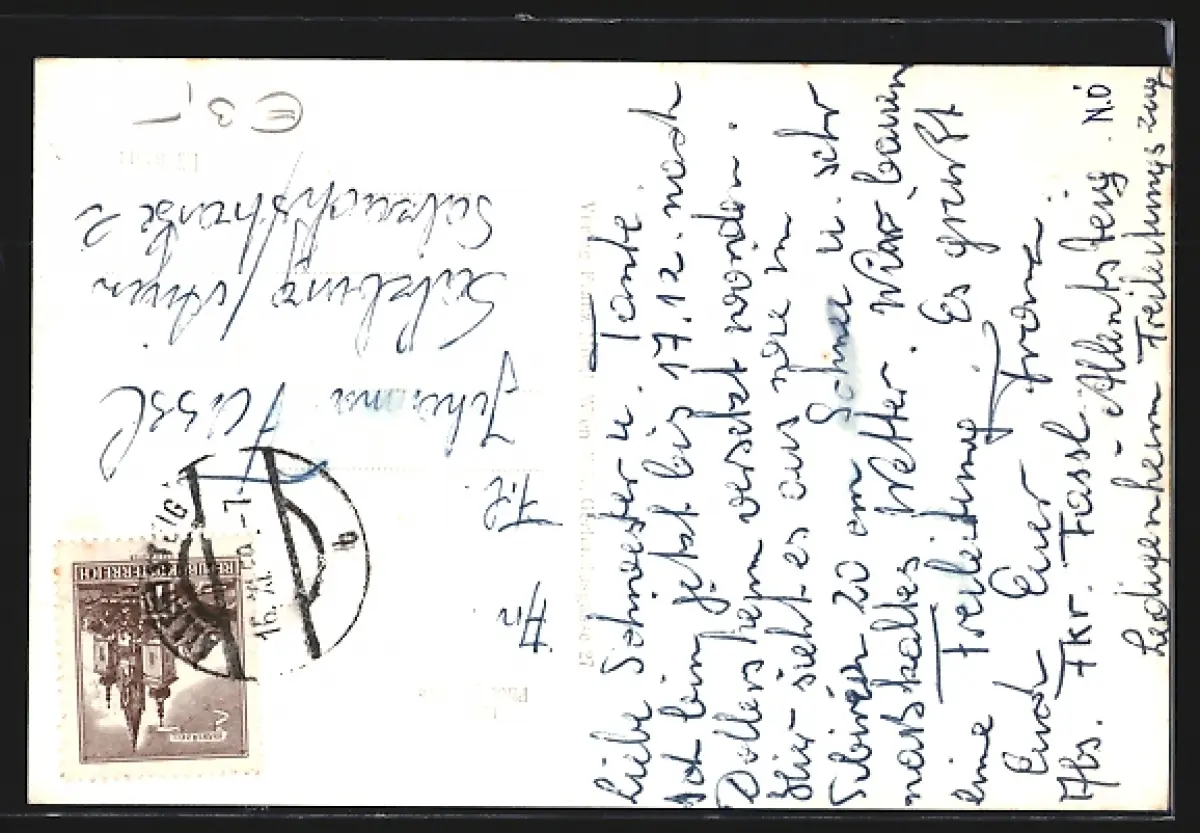 Liebe Schwester u. Tante.
Ich bin jetzt bis 17.12. nach
Döllersheim versetzt worden.
Hier sieht es aus wie in
Sibirien 20 cm Schnee u. sehr
naßkaltes Wetter. Wir bauen
eine Freileitung. Es grüßt
Euch Euer Franz.
Abs. Fkr. Fassl. Allentsteig. N.Ö
Ledigenheim Freileitungszug
An
Frl.
Johanna Fassl
/Wien
2
REPUBLIK ÖSTERREICH
16. XII.
b
€ 3,-